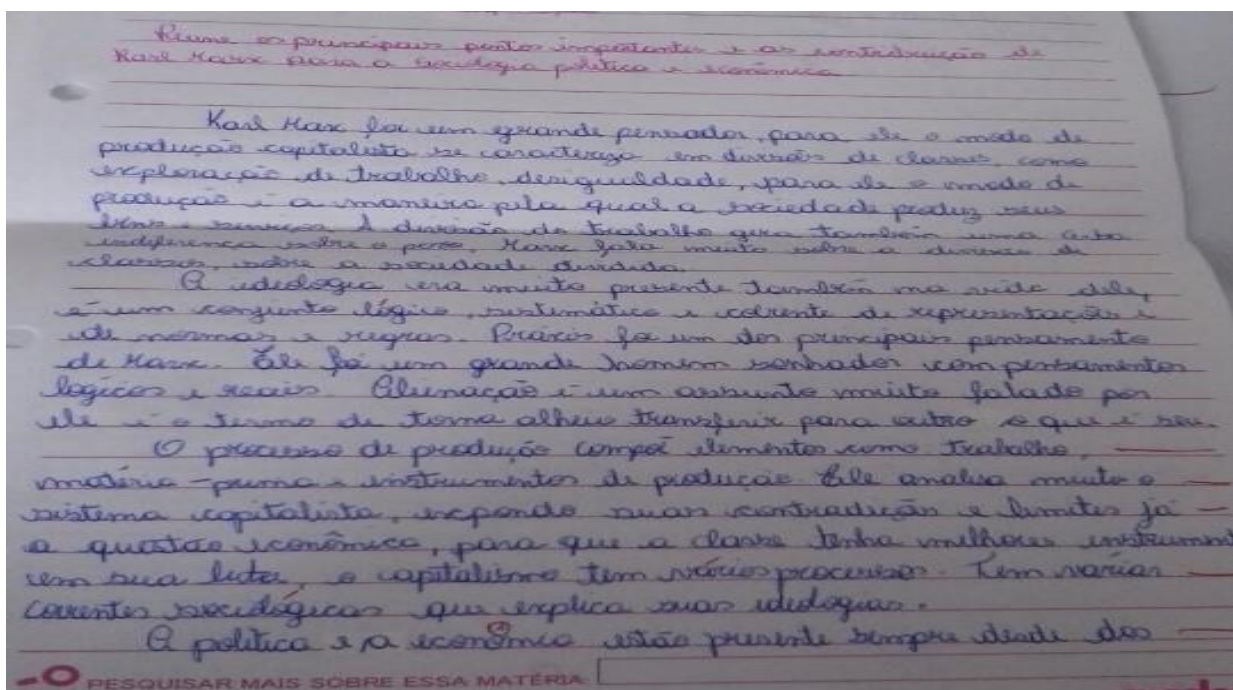 Reune os principais pontos importantes e as contribuição de
Karl Marx para a sociologia política e econômica
Karl Marx foi um grande pensador, para ele o modo de
produção capitalista se caracteriza em divisão de classes, como
exploração de trabalho, desigualdade, para ele o modo de
produção é a maneira pela qual a sociedade produz seus
bens e serviços. A divisão do trabalho gera também uma
indiferença sobre o Marx fala muito sobre a divisão de
classes, sobre a sociedade dividida.
A ideologia era muito presente também na vida dele,
é um conjunto lógico, sistemático e coerente de representações e
de normas e regras. Práxis foi um dos principais pensamento
de Marx. Ele foi um grande homem sonhador com pensamentos
logicos e reais. Alienação é um assunto muito falado por
ele é o termo de torna alheio transferir para outro o que é seu.
O processo de produção compoi elementos como trabalho,
matéria-prima e instrumentos de produção. Ele analisa muito o
sistema capitalista, expondo suas contradição e limites já
a questão econômica, para que a classe tenha melhores instrument
em sua luta, o capitalismo tem vários processos. Tem varias
correntes sociológicas que explica suas ideologias.
A política e a econômica estão presente sempre desde dos
PESQUISAR MAIS SOBRE ESSA MATÉRIA